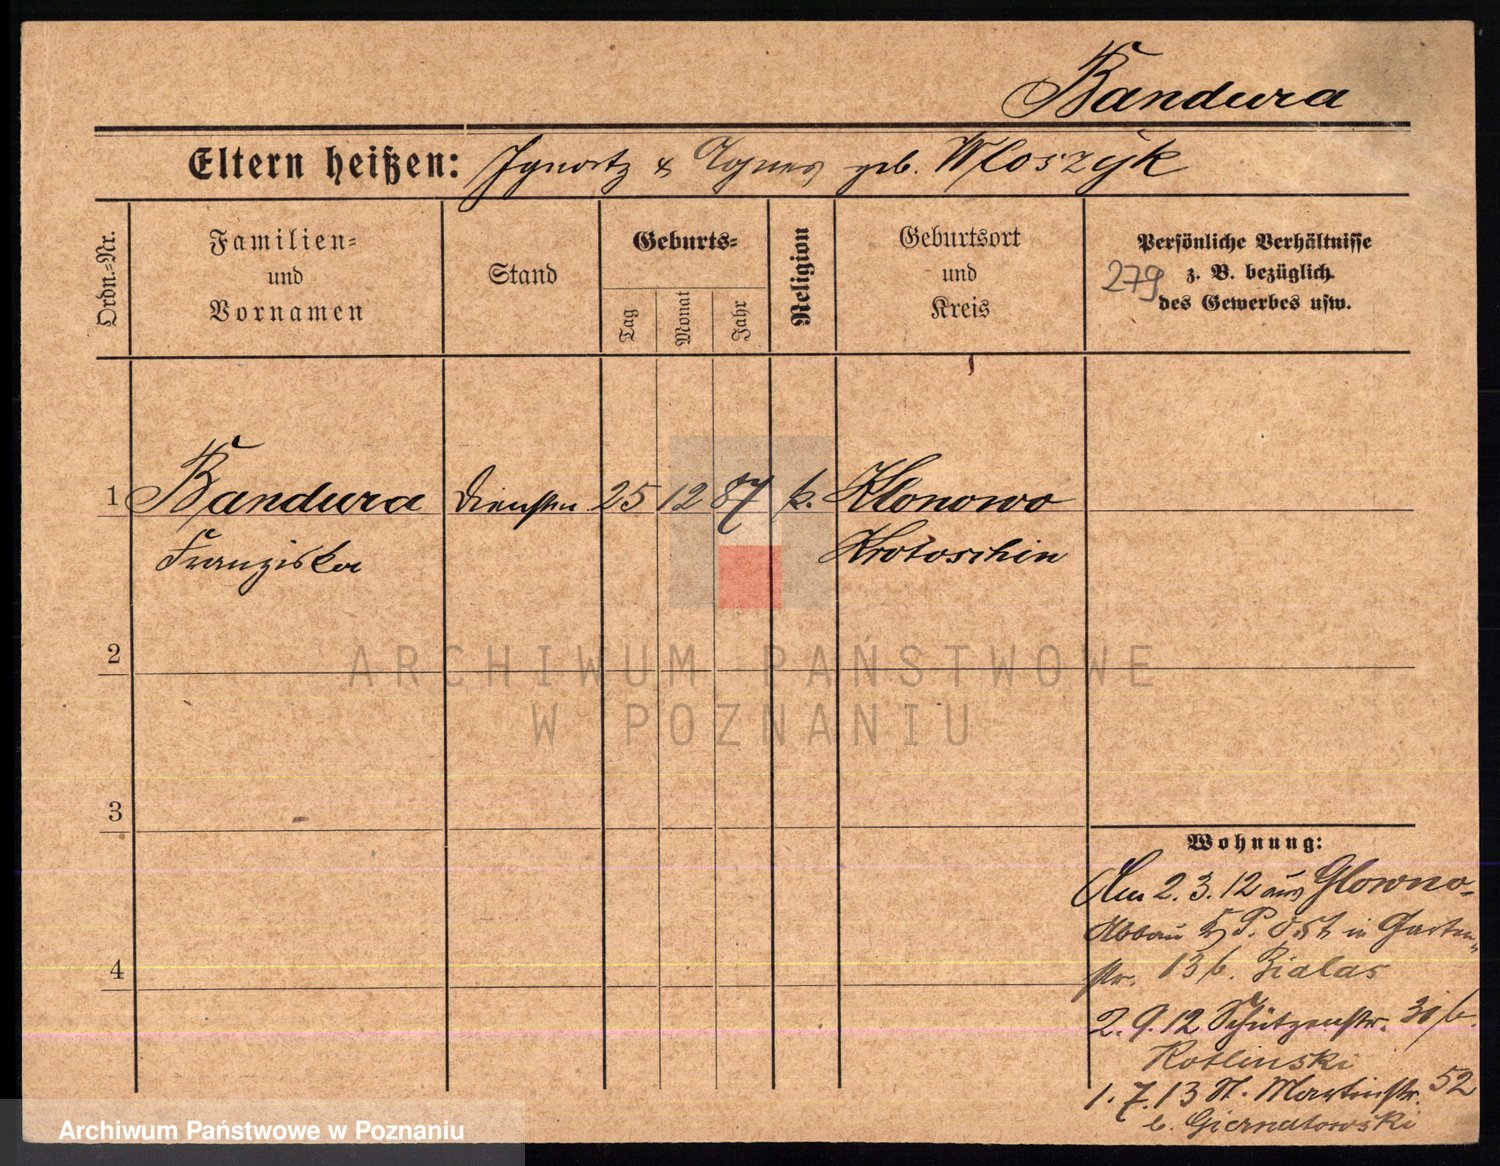 Bandura
Eltern heißen: Ignatz & Agnes geb. Wloszyk
Ordn.-Nr.
Familien-
und
Vornamen
Stand
Geburts-
Tag
Monat
Jahr
Religion
Geburtsort
und
Kreis
Persönliche Verhältnisse
z. B. bezüglich
des Gewerbes usw.
279
1 Bandura 25 12 87 k. Klonowo
Franziska Krotoschin
2
ARCHIWUM PAŃSTWOWE
W POZNANIU
3
Wohnung:
Am 2.3.12 aus Glowno-
Abbau P. Ost in Garten-
str. 13 b. Bialas
2.9.12 Schützenstr. 31 b.
Kotlinski
1.7.13 St. Martinstr. 52
b. Giernatowski
4
Archiwum Państwowe w Poznaniu